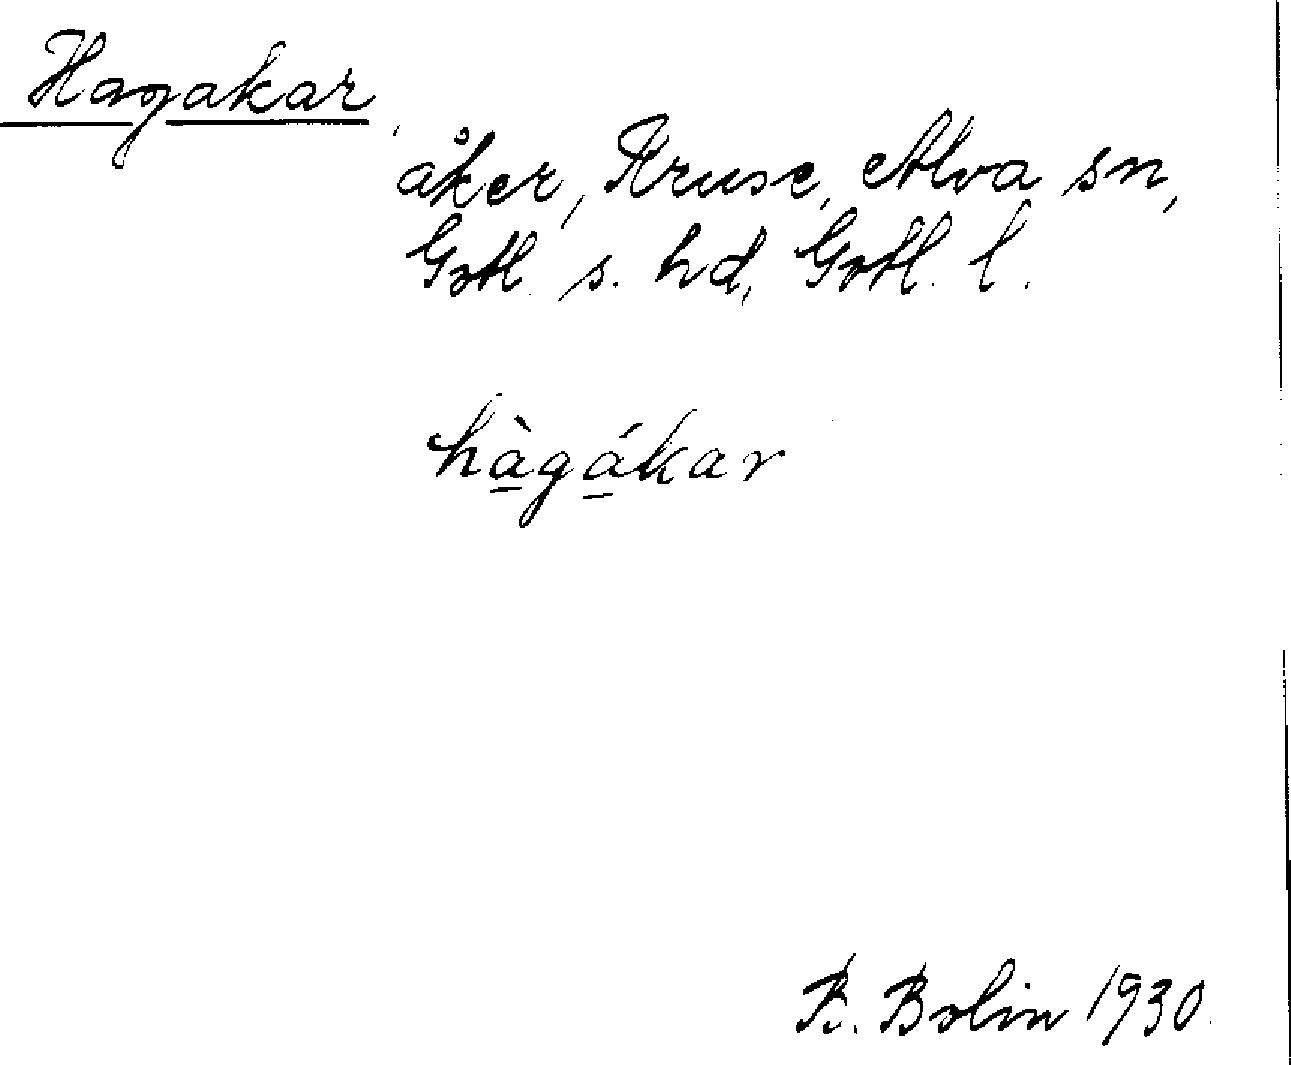 Hagakar
åker, Kruse, Alva sn,
Gotl. s. hd, Gotl. l.
hà̱gá̱kar
R. Bolin 1930.